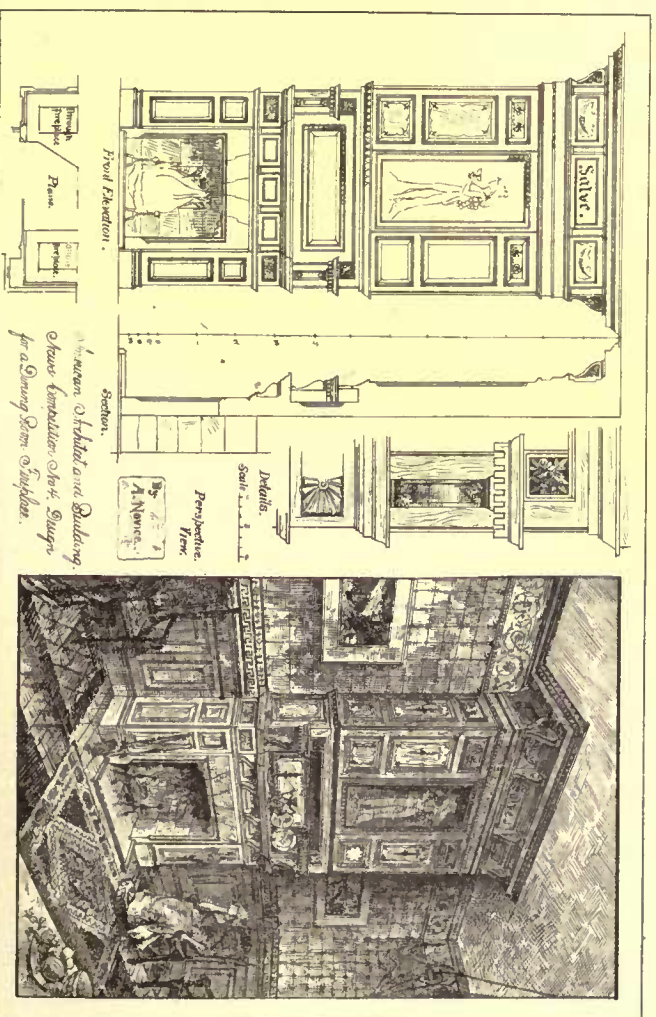 Salve.
Front Elevation.
through
fireplace
Plans.
Section.
Details.
Scale
Perspective
View.
By
A. Novice.
American Architect and Building
News Competition No 4. Design
for a Dining Room Fireplace.